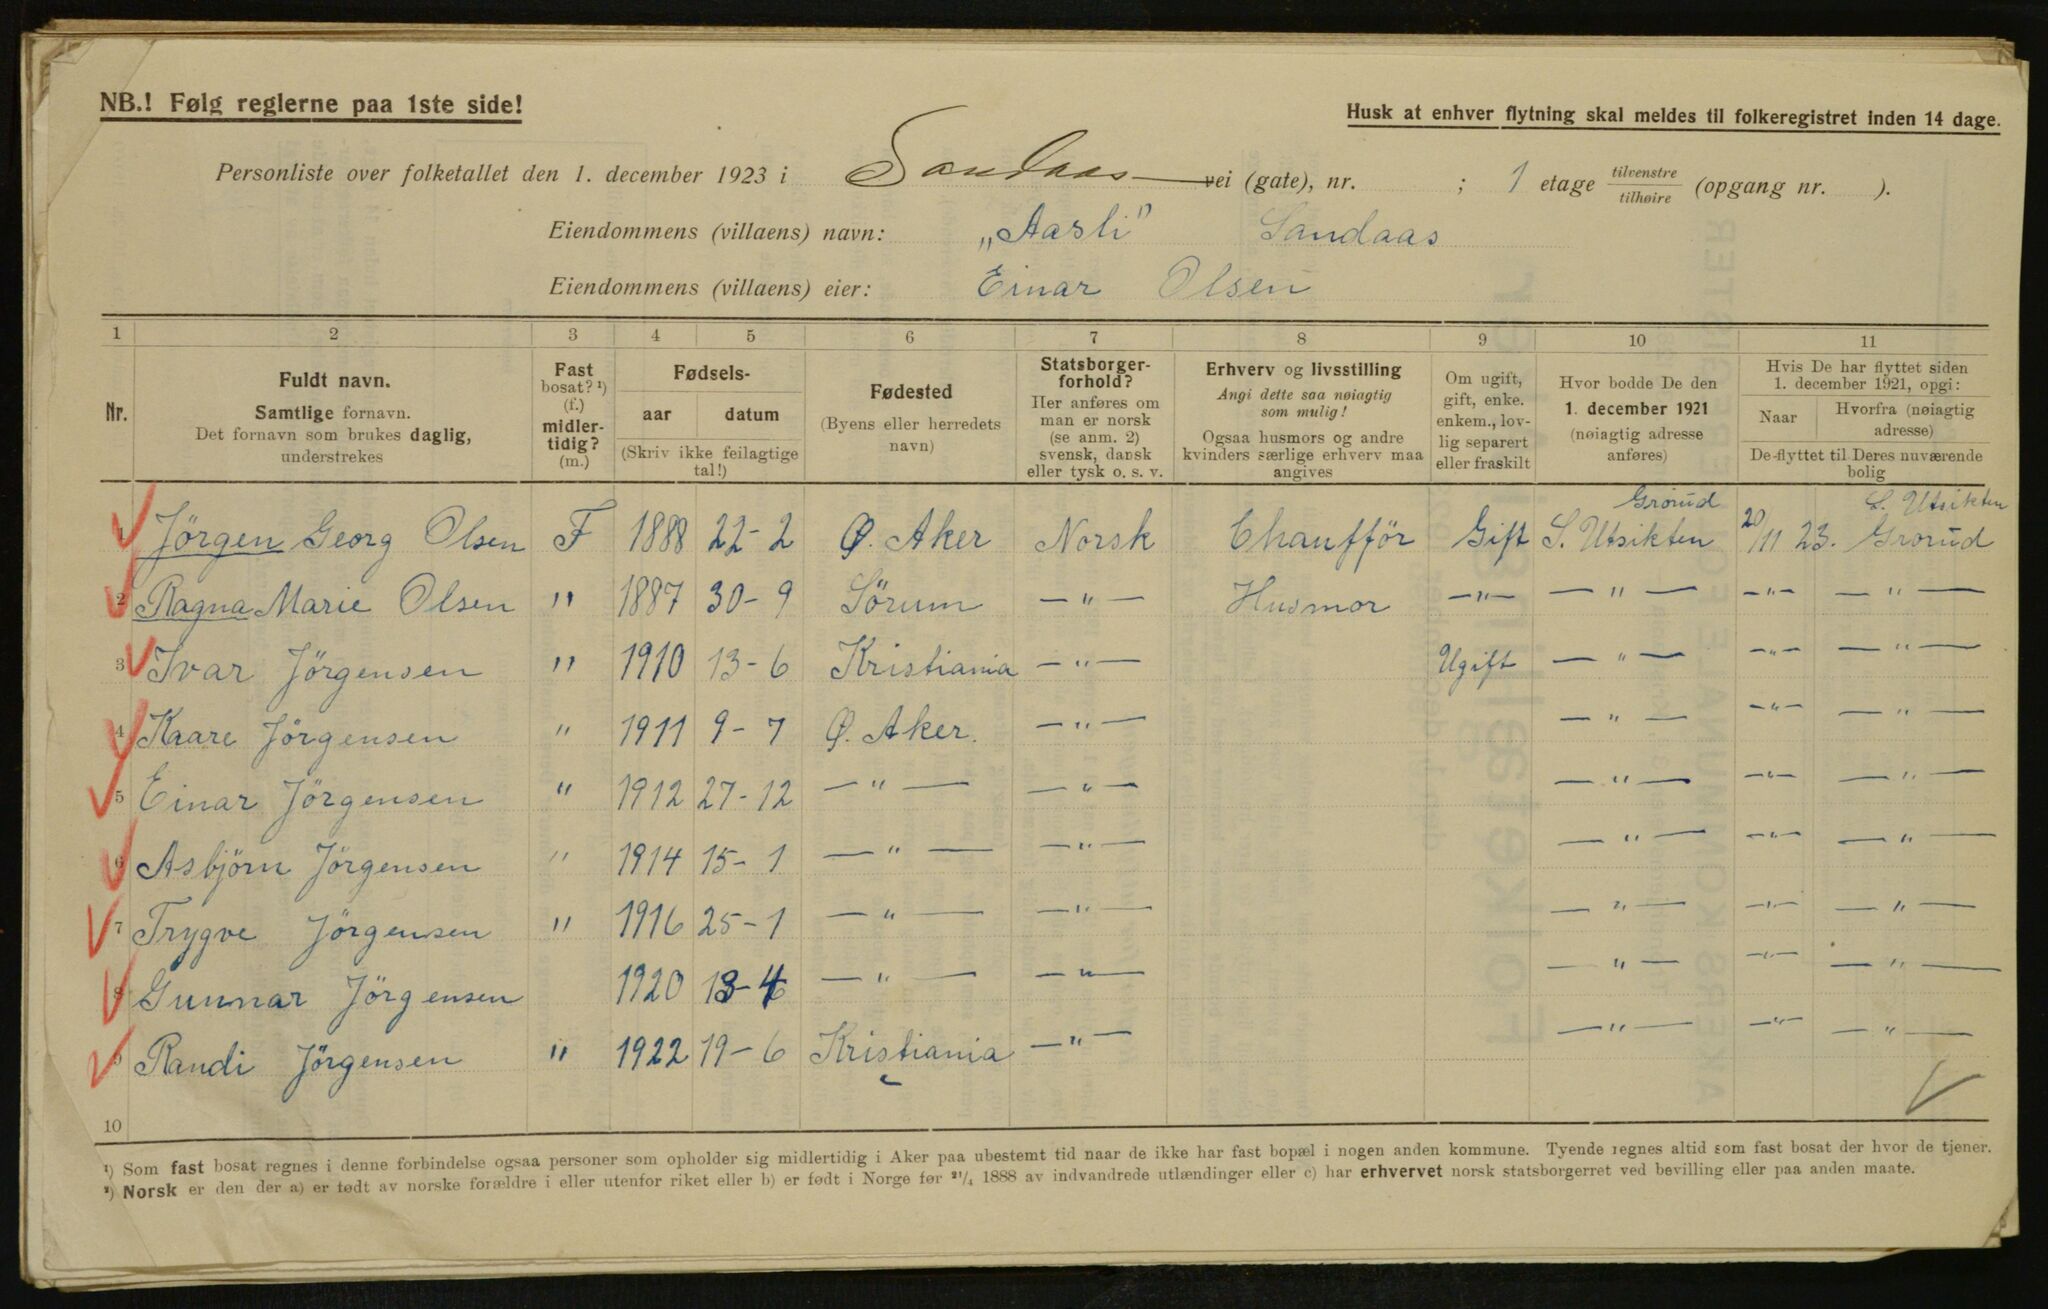 NB.! Følg reglerne paa 1ste side!
Husk at enhver flytning skal meldes til folkeregistret inden 14 dage.
Personliste over folketallet den 1. december 1923 i Sandaas vei (gate), nr. ; 1 etage tilvenstre / tilhøire (opgang nr. ).
Eiendommens (villaens) navn: „Aasli" Sandaas
Eiendommens (villaens) eier: Einar Olsen
1 2 3 4 5 6 7 8 9 10 11
Nr.
Fuldt navn.
Samtlige fornavn.
Det fornavn som brukes daglig,
understrekes
Fast
bosat? ¹)
(f.)
midler-
tidig?
(m.)
Fødsels-
aar datum
(Skriv ikke feilagtige
tal!)
Fødested
(Byens eller herredets
navn)
Statsborger-
forhold?
Her anføres om
man er norsk
(se anm. 2)
svensk, dansk
eller tysk o. s. v.
Erhverv og livsstilling
Angi dette saa nøiagtig
som mulig!
Ogsaa husmors og andre
kvinders særlige erhverv maa
angives
Om ugift,
gift, enke.
enkem., lov-
lig separert
eller fraskilt
Hvor bodde De den
1. december 1921
(nøiagtig adresse
anføres)
Hvis De har flyttet siden
1. december 1921, opgi:
Naar
Hvorfra (nøiagtig
adresse)
De flyttet til Deres nuværende
bolig
Grorud S. Utsikten
1 Jörgen Georg Olsen F 1888 22-2 Ø. Aker Norsk Chaufför Gift S. Utsikten 20/11 23. Grorud
2 Ragna Marie Olsen " 1887 30-9 Sörum —"— Husmor —"— —"— —"— —"—
3 Ivar Jörgensen " 1910 13-6 Kristiania —"— Ugift —"— —"— —"—
4 Kaare Jörgensen " 1911 9-7 Ø. Aker. —"— —"— —"— —"—
5 Einar Jörgensen " 1912 27-12 —"— —"— —"— —"— —"—
6 Asbjörn Jörgensen " 1914 15-1 —"— —"— —"— —"— —"—
7 Trygve Jörgensen " 1916 25-1 —"— —"— —"— —"— —"—
8 Gunnar Jörgensen 1920 13-4 —"— —"— —"— —"— —"—
9 Randi Jörgensen " 1922 19-6 Kristiania —"— —"— —"— —"—
10
¹) Som fast bosat regnes i denne forbindelse ogsaa personer som opholder sig midlertidig i Aker paa ubestemt tid naar de ikke har fast bopæl i nogen anden kommune. Tyende regnes altid som fast bosat der hvor de tjener.
²) Norsk er den der a) er født av norske forældre i eller utenfor riket eller b) er født i Norge før ²¹/₄ 1888 av indvandrede utlændinger eller c) har erhvervet norsk statsborgerret ved bevilling eller paa anden maate.